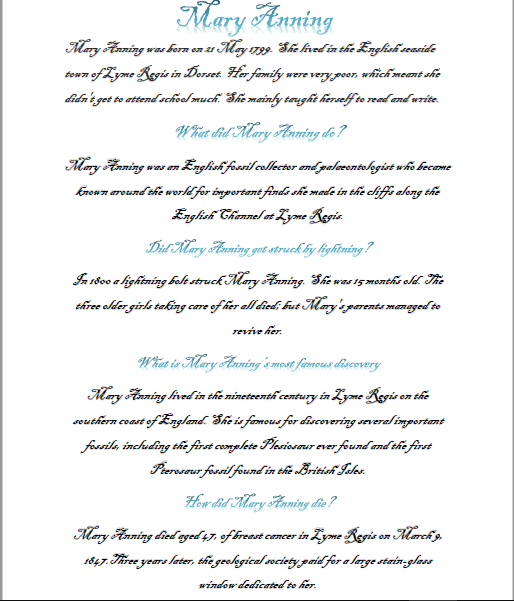 Mary Anning
Mary Anning was born on 21 May 1799. She lived in the English seaside
town of Lyme Regis in Dorset. Her family were very poor, which meant she
didn't get to attend school much. She mainly taught herself to read and write.
What did Mary Anning do?
Mary Anning was an English fossil collector and palaeontologist who became
known around the world for important finds she made in the cliffs along the
English Channel at Lyme Regis.
Did Mary Anning got struck by lightning?
In 1800 a lightning bolt struck Mary Anning. She was 15 months old. The
three older girls taking care of her all died; but Mary's parents managed to
revive her.
What is Mary Anning's most famous discovery
Mary Anning lived in the nineteenth century in Lyme Regis on the
southern coast of England. She is famous for discovering several important
fossils, including the first complete Plesiosaur ever found and the first
Pterosaur fossil found in the British Isles.
How did Mary Anning die?
Mary Anning died aged 47, of breast cancer in Lyme Regis on March 9,
1847. Three years later, the geological society paid for a large stain-glass
window dedicated to her.